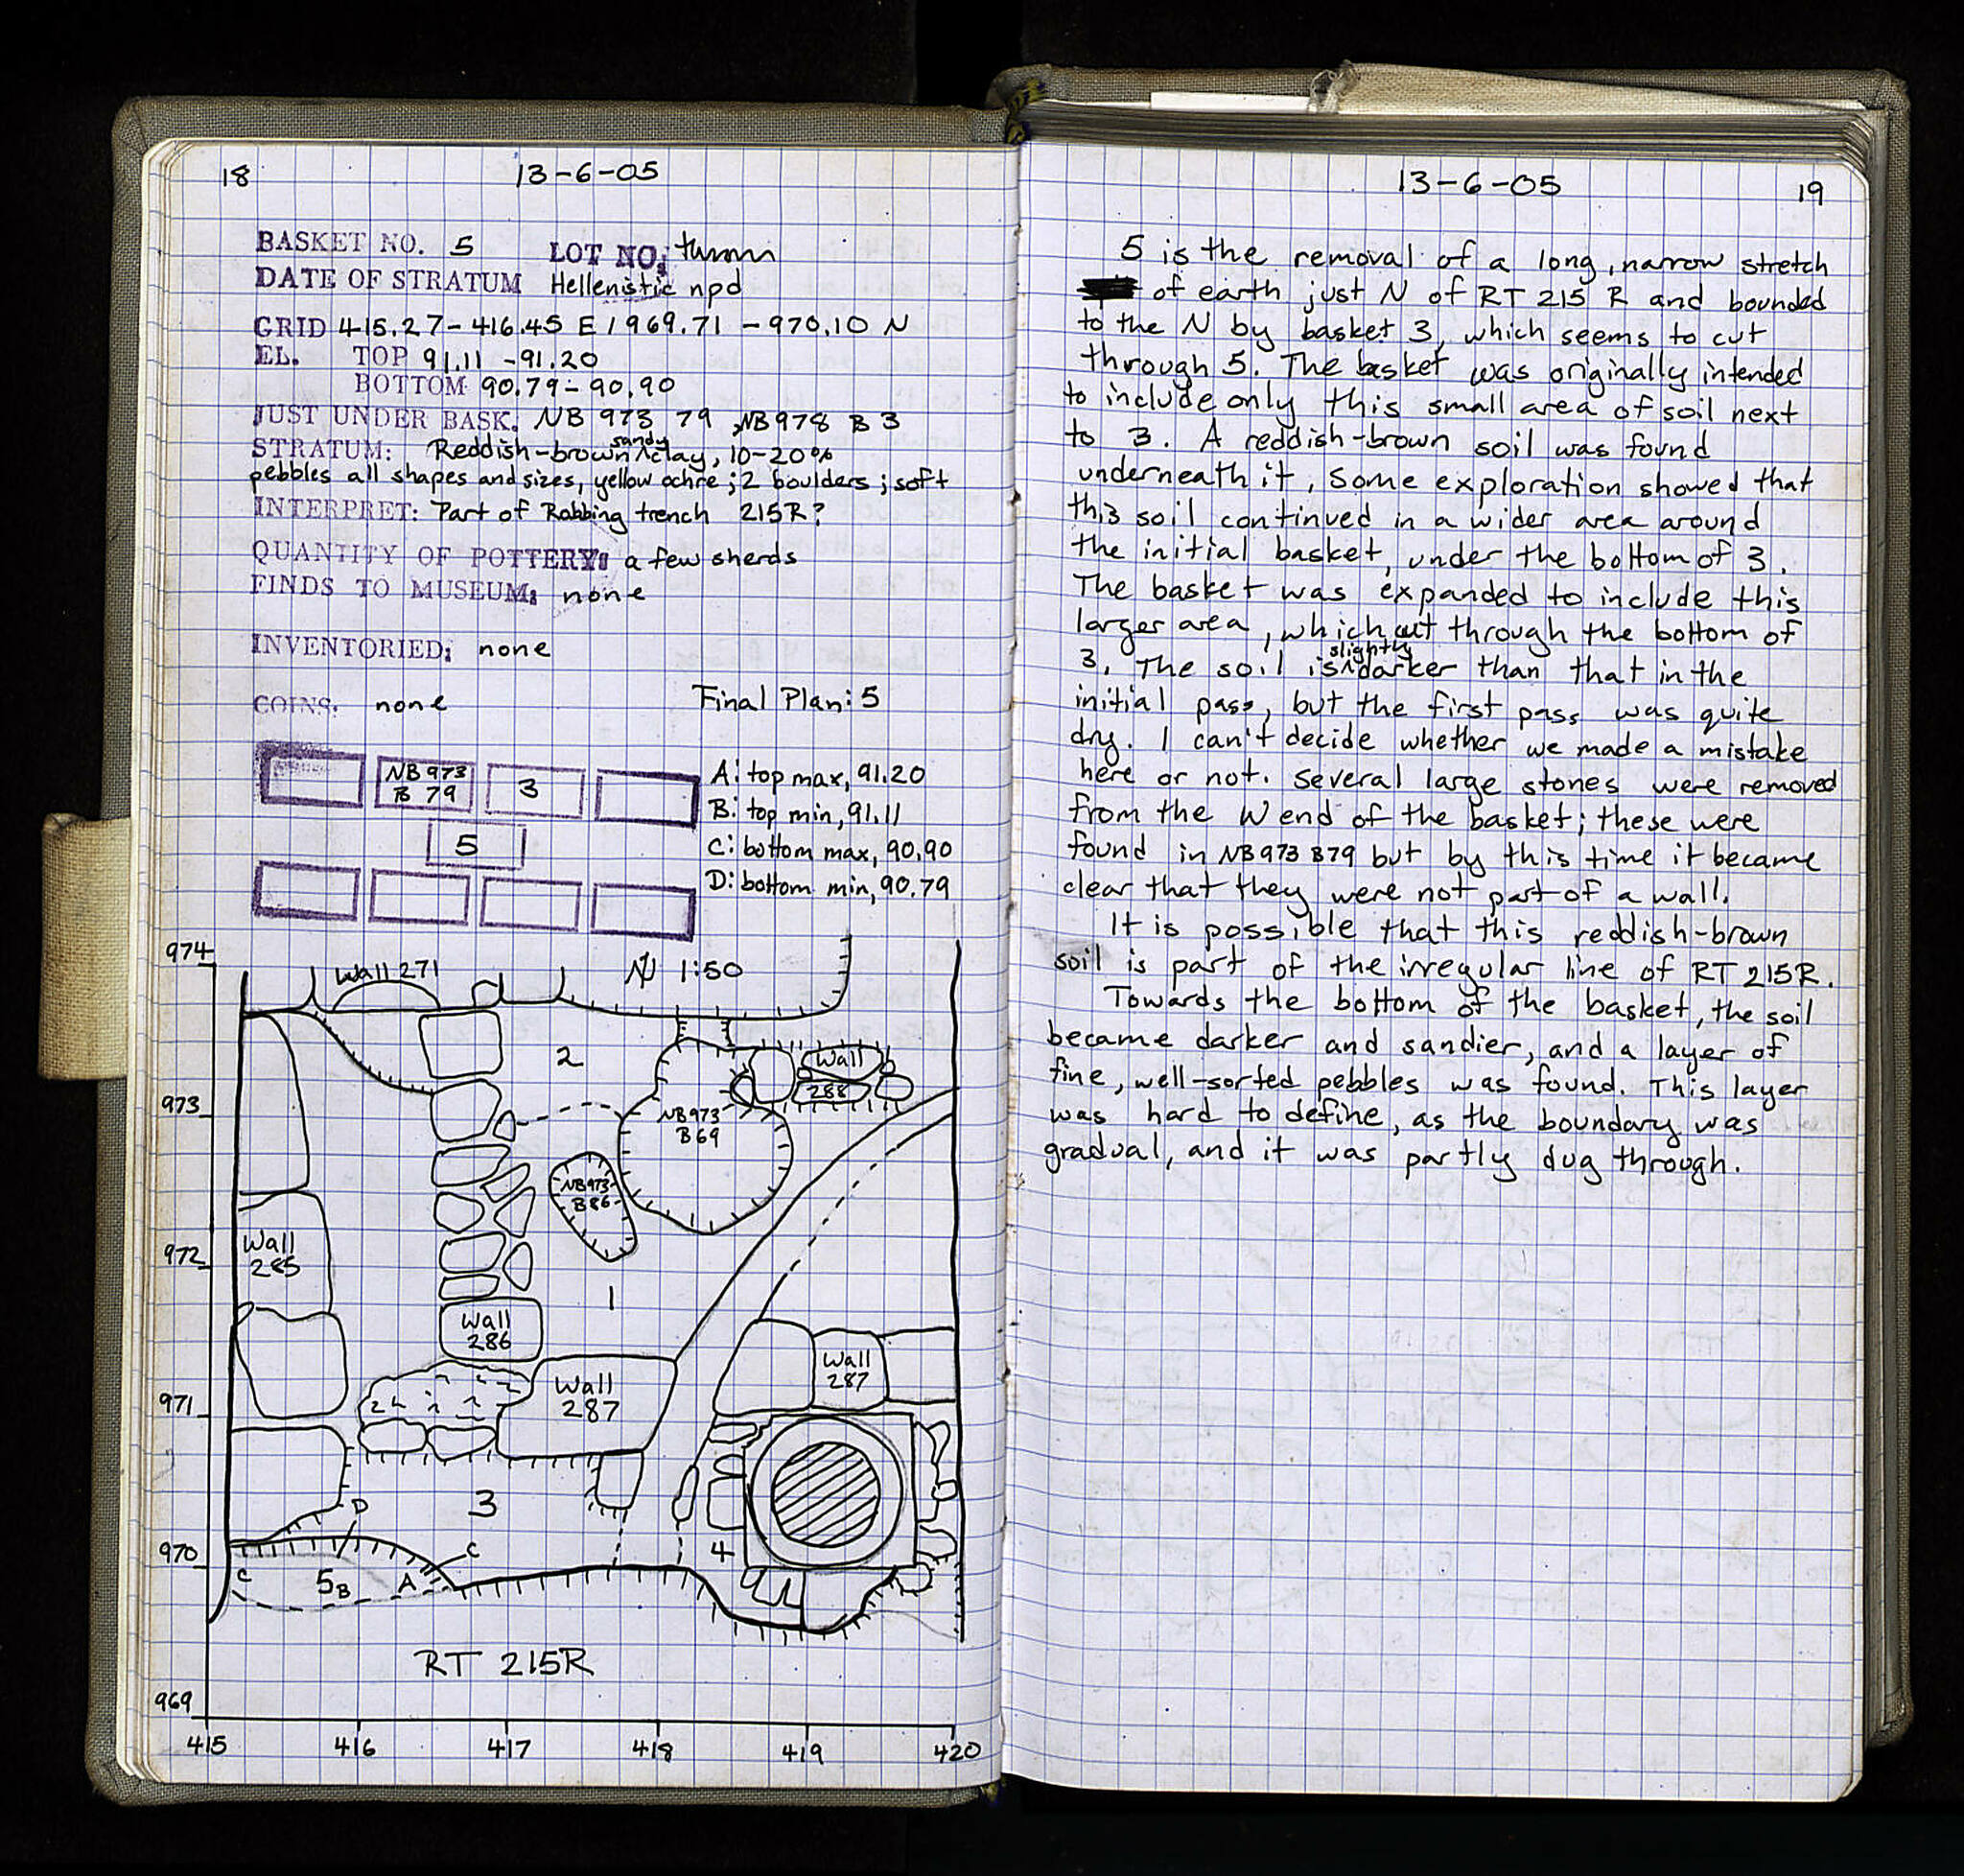 18
13-6-05
BASKET NO. 5 LOT NO:
DATE OF STRATUM Hellenistic npd
GRID 415.27-416.45 E / 969.71 - 970.10 N
EL. TOP 91.11 - 91.20
BOTTOM 90.79 - 90.90
JUST UNDER BASK. NB 973 79, NB978 B 3
STRATUM: Reddish-brown sandy clay, 10-20%
pebbles all shapes and sizes, yellow ochre; 2 boulders; soft
INTERPRET: Part of Robbing trench 215R?
QUANTITY OF POTTERY: a few sherds
FINDS TO MUSEUM: none
INVENTORIED: none
COINS: none
Final Plan: 5
NB 973
B 79
3
5
A: top max, 91.20
B: top min, 91.11
C: bottom max, 90.90
D: bottom min, 90.79
974
Wall 271
N 1:50
2
Wall
288
973
NB 973
B 69
NB973
B86
Wall
285
972
1
Wall
286
Wall
287
Wall
287
971
3
D
970
C
C
5
B
A
4
RT 215R
969
415 416 417 418 419 420
13-6-05
19
5 is the removal of a long, narrow stretch
of earth just N of RT 215 R and bounded
to the N by basket 3, which seems to cut
through 5. The basket was originally intended
to include only this small area of soil next
to 3. A reddish-brown soil was found
underneath it, some exploration showed that
this soil continued in a wider area around
the initial basket, under the bottom of 3.
The basket was expanded to include this
larger area, which cut through the bottom of
3. The soil is slightly darker than that in the
initial pass, but the first pass was quite
dry. I can't decide whether we made a mistake
here or not. Several large stones were removed
from the W end of the basket; these were
found in NB973 B79 but by this time it became
clear that they were not part of a wall.
It is possible that this reddish-brown
soil is part of the irregular line of RT 215R.
Towards the bottom of the basket, the soil
became darker and sandier, and a layer of
fine, well-sorted pebbles was found. This layer
was hard to define, as the boundary was
gradual, and it was partly dug through.